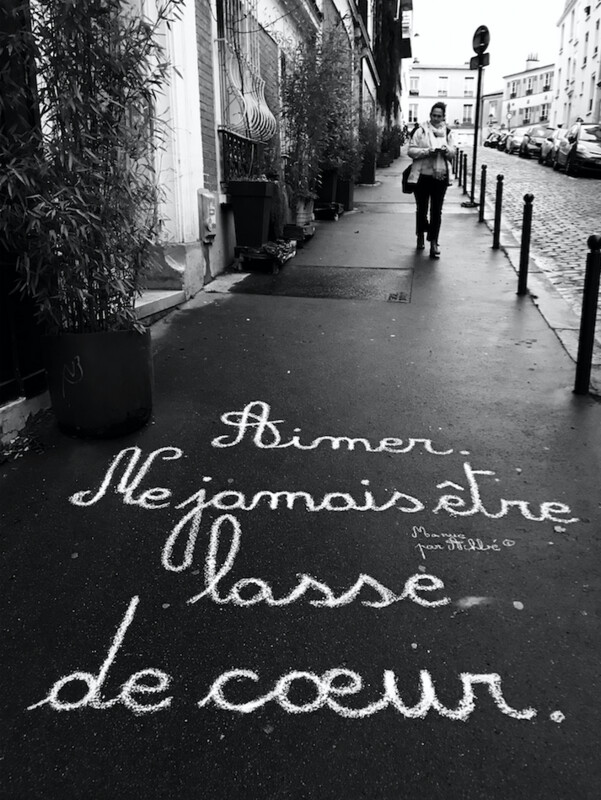 Aimer.
Ne jamais être
lasse
de cœur.
par